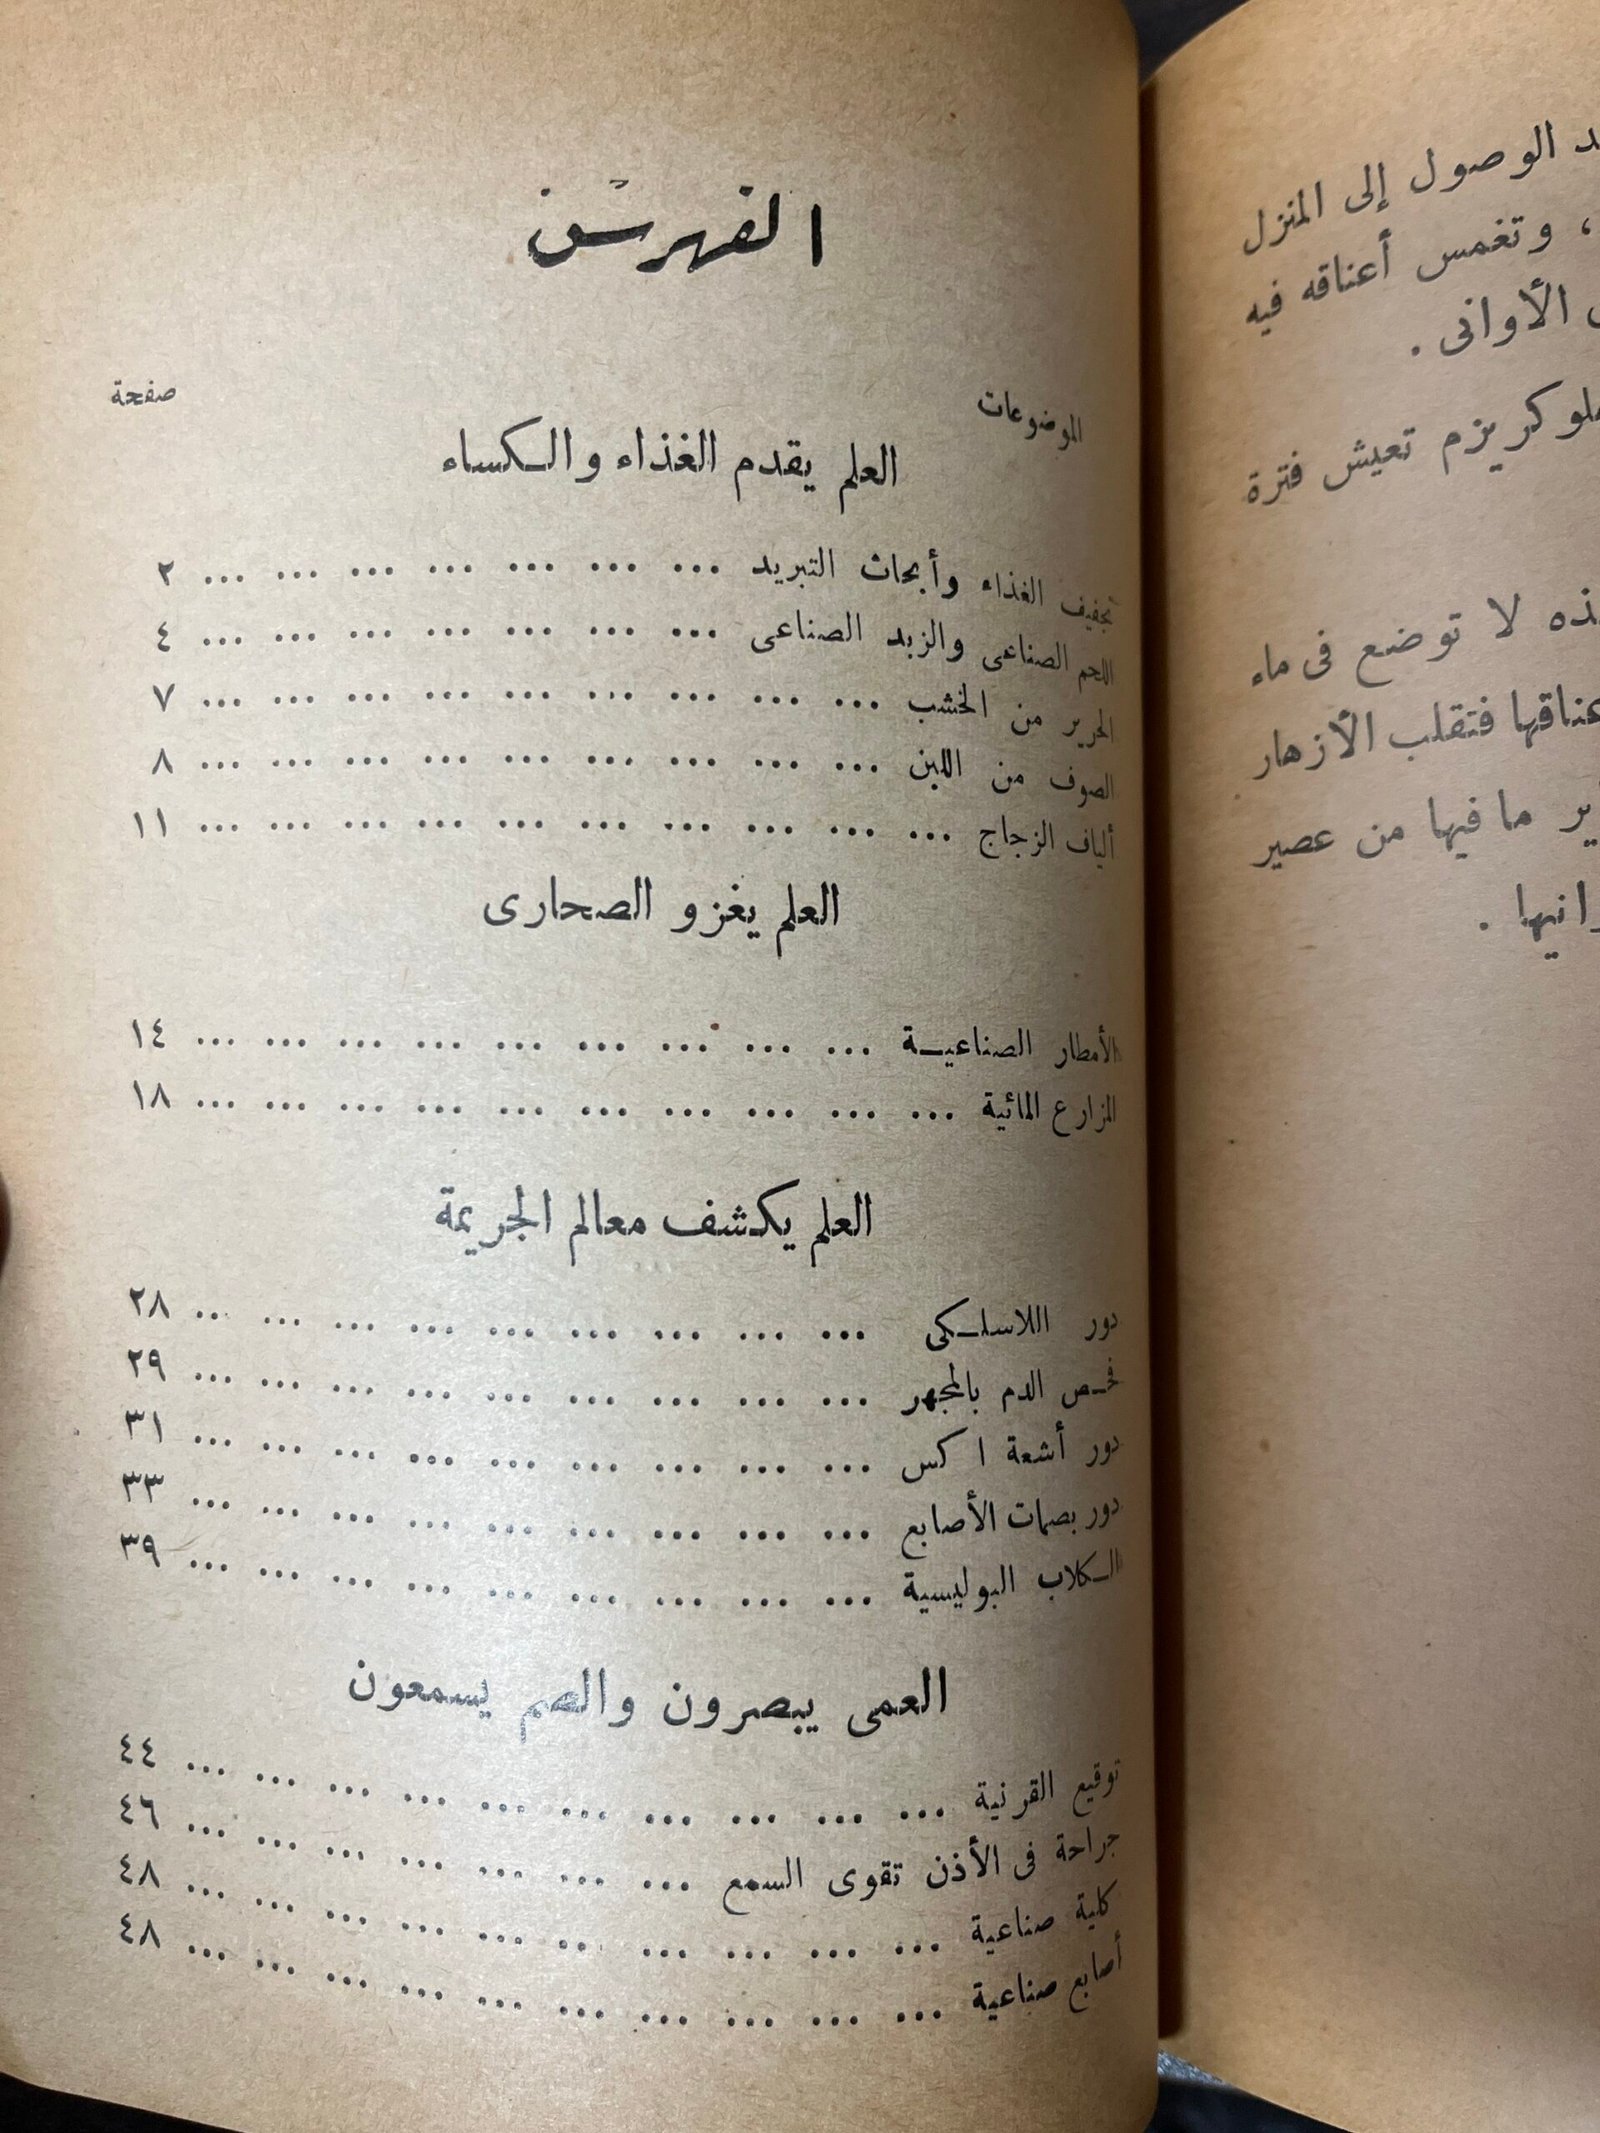 الفهرس
الموضوعات صفحة
العلم يقدم الغذاء والكساء
تجفيف الغذاء وأبحاث التبريد ... ... ... ... ... ... ... ٢
اللحم الصناعى والزبد الصناعى ... ... ... ... ... ... ... ٤
الحرير من الخشب ... ... ... ... ... ... ... ... ... ٧
الصوف من اللبن ... ... ... ... ... ... ... ... ... ٨
ألياف الزجاج ... ... ... ... ... ... ... ... ... ... ١١
العلم يغزو الصحارى
الأمطار الصناعيـة ... ... ... ... ... ... ... ... ... ١٤
المزارع المائية ... ... ... ... ... ... ... ... ... ... ١٨
العلم يكشف معالم الجريمة
دور اللاسلـكى ... ... ... ... ... ... ... ... ... ٢٨
فحـص الدم بالمجهر ... ... ... ... ... ... ... ... ... ٢٩
دور أشعة اكس ... ... ... ... ... ... ... ... ... ٣١
دور بصمات الأصابع ... ... ... ... ... ... ... ... ... ٣٣
الـكلاب البوليسية ... ... ... ... ... ... ... ... ... ٣٩
العمى يبصرون والصم يسمعون
توقيع القرنية ... ... ... ... ... ... ... ... ... ... ٤٤
جراحة فى الأذن تقوى السمع ... ... ... ... ... ... ... ٤٦
كلية صناعية ... ... ... ... ... ... ... ... ... ... ٤٨
أصابع صناعية ... ... ... ... ... ... ... ... ... ... ٤٨
الوصول إلى المنزل
، وتغمس أعناقه فيه
الأوانى .
تعيش فترة
لا توضع فى ماء
فتقلب الأزهار
ما فيها من عصير